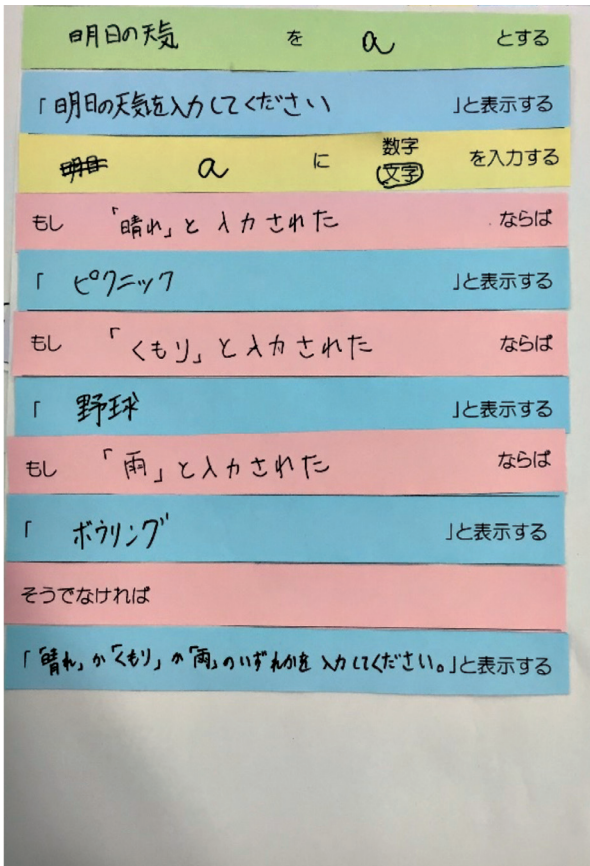 明日の天気 を a とする
「明日の天気を入力してください 」と表示する
a に 数字 文字 を入力する
もし 「晴れ」と入力された ならば
「 ピクニック 」と表示する
もし 「くもり」と入力された ならば
「 野球 」と表示する
もし 「雨」と入力された ならば
「 ボウリング 」と表示する
そうでなければ
「「晴れ」か「くもり」か「雨」のいずれかを入力してください。」と表示する